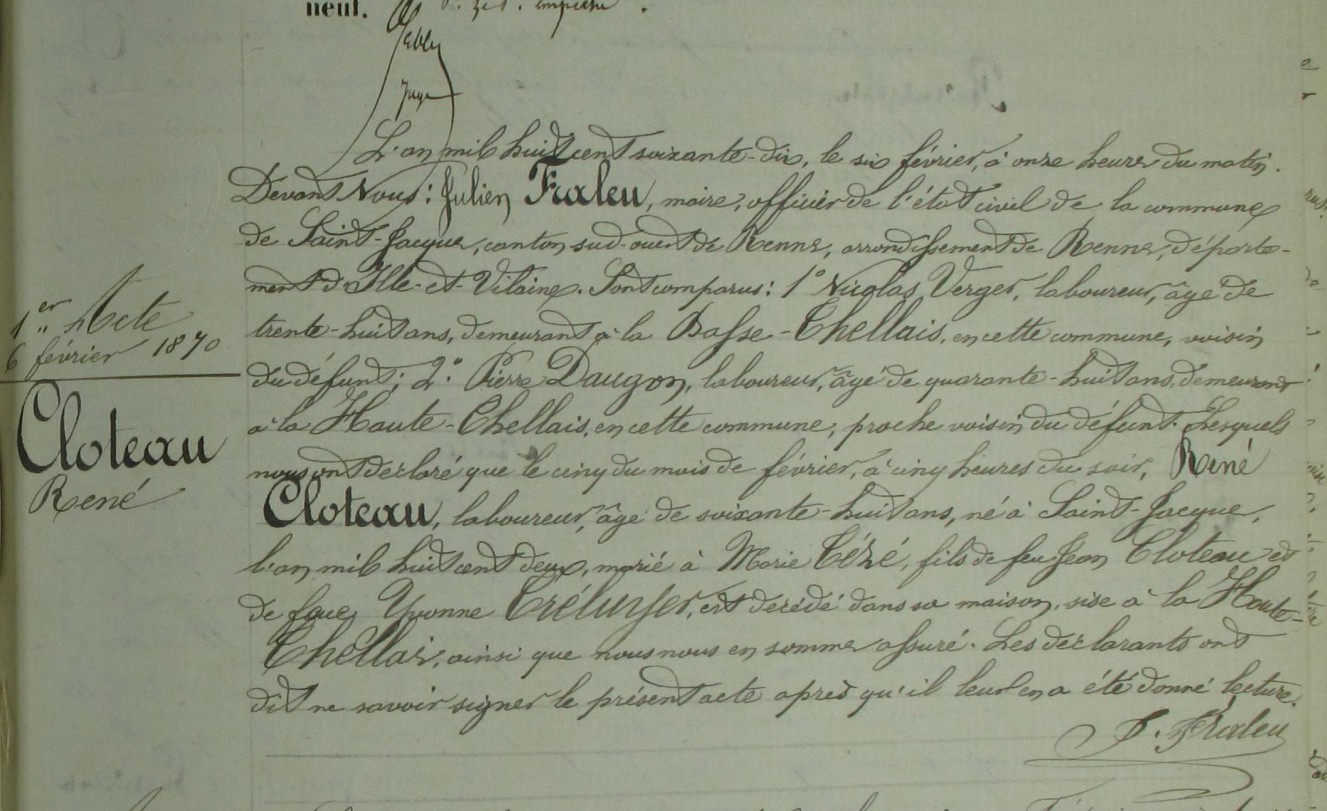 neuf.
Juge
L'an mil huit cent soixante-dix, le six février, à onze heures du matin.
Devant Nous: Julien Fraleu, maire, officier de l'état civil de la commune
de Saint-Jacques, canton sud-ouest de Rennes, arrondissement de Rennes, départe-
ment d'Ille-et-Vilaine. Sont comparus: 1° Nicolas Verger, laboureur, âgé de
trente-huit ans, demeurant à la Basse-Chellais, en cette commune, voisin
du défunt; 2° Pierre Daugon, laboureur, âgé de quarante-huit ans, demeurant
à la Haute-Chellais, en cette commune, proche voisin du défunt. Lesquels
nous ont déclaré que le cinq du mois de février, à cinq heures du soir, René
Cloteau, laboureur, âgé de soixante-huit ans, né à Saint-Jacques,
l'an mil huit cent deux, marié à Marie Cézé, fils de feu Jean Cloteau et
de feue Yvonne est décédé dans sa maison, sise à la Haute-
Chellais, ainsi que nous nous en sommes assuré. Les déclarants ont
dit ne savoir signer le présent acte après qu'il leur en a été donné lecture.
J. Fraleu
1er Acte
6 février 1870
Cloteau
René